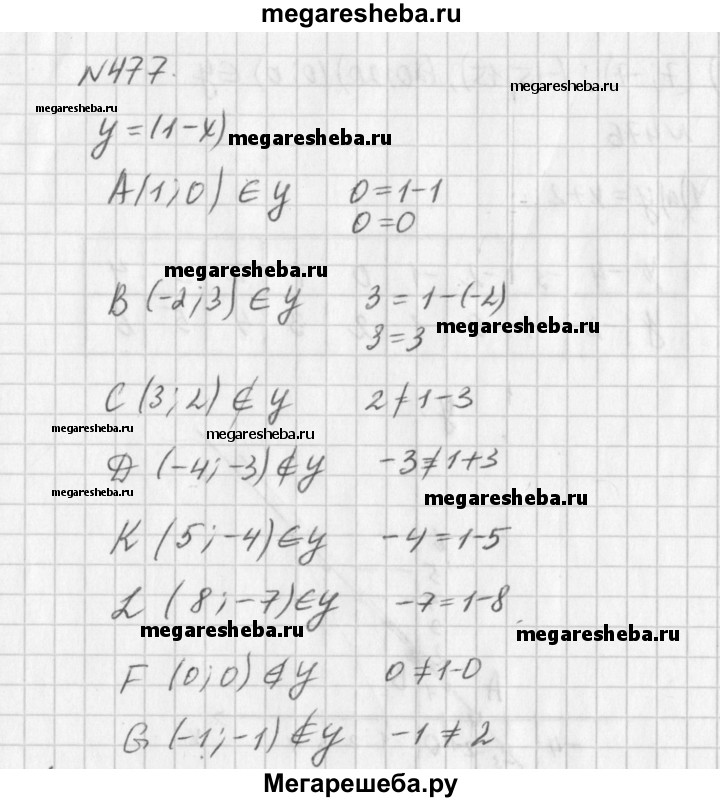 megaresheba.ru
N477.
megaresheba.ru
megaresheba.ru
y = (1-x) megaresheba.ru
A(1;0) ∈ y 0=1-1
0=0
megaresheba.ru
B (-2;3) ∈ y 3 = 1-(-2)
3=3 megaresheba.ru
C (3;2) ∉ y 2≠1-3
megaresheba.ru megaresheba.ru
D (-4;-3) ∉ y -3≠1+3
megaresheba.ru megaresheba.ru
K (5;-4) ∈ y -4=1-5
L (8;-7) ∈ y -7=1-8
megaresheba.ru megaresheba.ru
F (0;0) ∉ y 0≠1-0
G (-1;-1) ∉ y -1≠2
Мегарешеба.ру